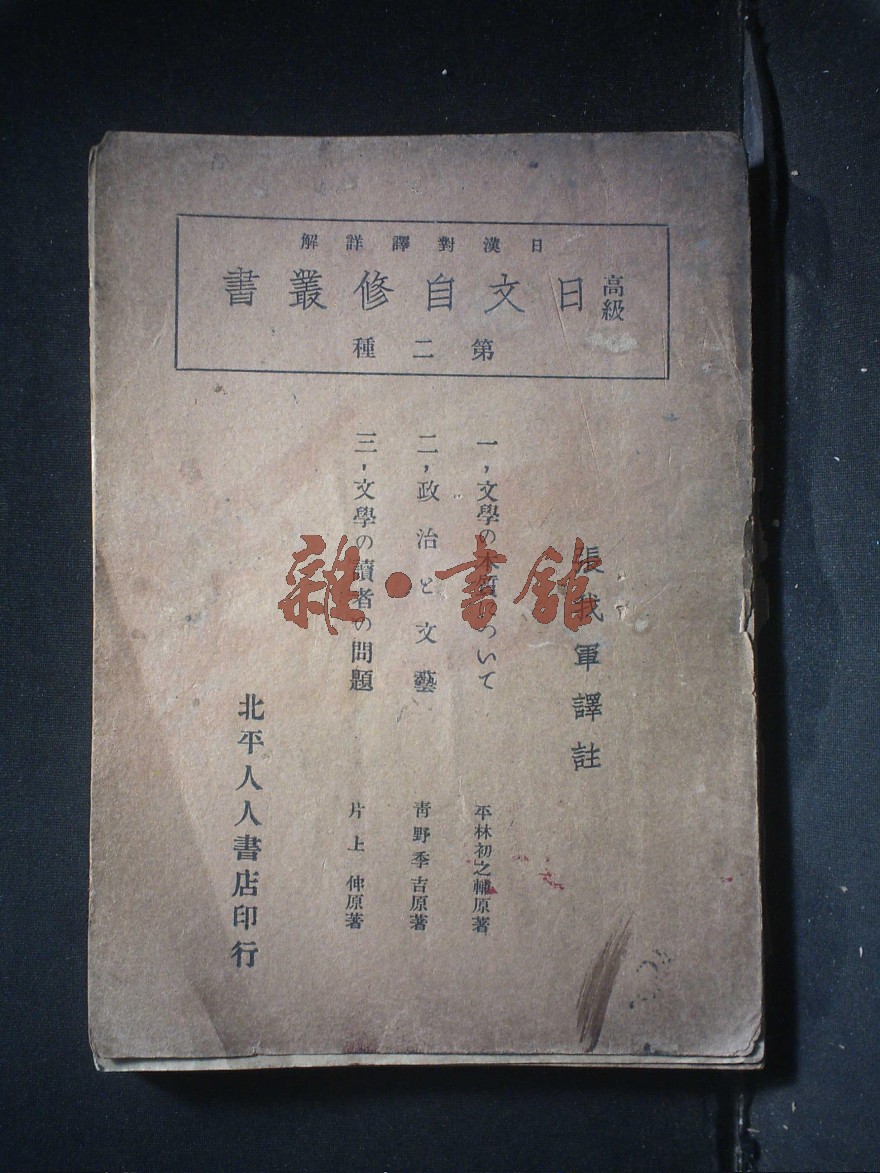 日漢對譯詳解
高級
日文自修叢書
第二種
張我軍譯註
一，文學の本質について
平林初之輔原著
二，政治と文藝
青野季吉原著
三，文學の讀者の問題
片上伸原著
北平人人書店印行
雜·書館